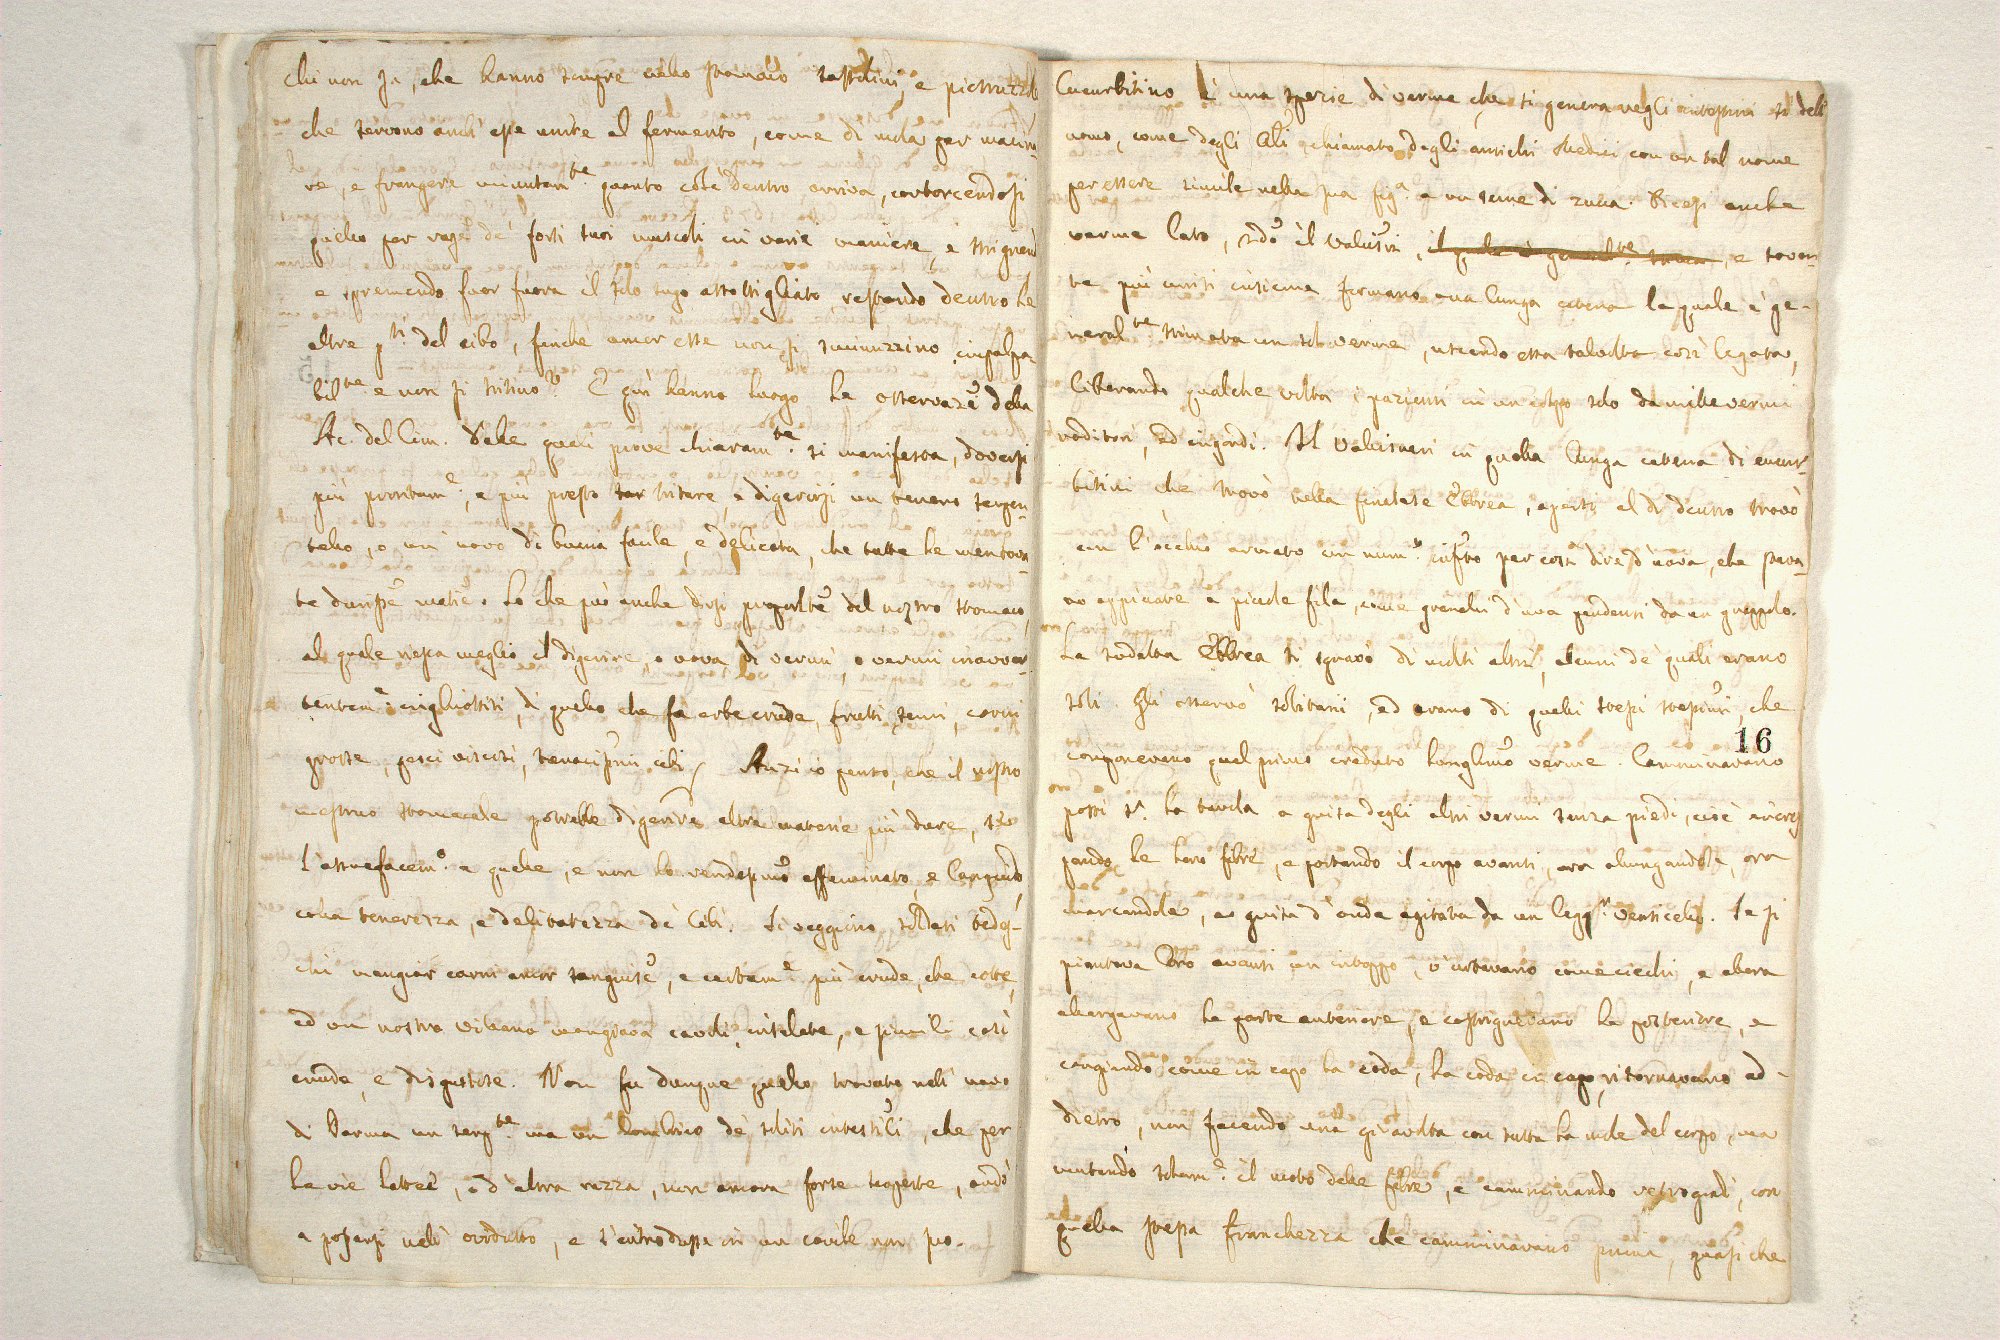 chi non sa, che hanno sempre nello stomaco sassolini, e pietruzze
che servono anch' esse unite al fermento, come di mola per macina-
re, e frangere minutam.te quanto colà dentro arriva, contorcendosi
quello per vag. de' forti suoi muscoli in varie maniere, e strignend
e spremendo fuor fuora il solo sugo assottigliato, restando dentro le
altre p.ti del cibo, finchè ancor esse non si sminuzzino impalpa
bil.te e non si tritino. E quì hanno luogo le osservaz.i della
Ac. del Cim. Dalle quali prove chiaram.te si manifesta, doversi
più prontam.e, e più presto tritare, e digerirsi un tenero serpen-
tello, o un' uovo di buccia facile, e delicata, che tutte le mentova-
te durisse materie. Lo che può anche dirsi del nostro stomaco,
al quale riesca meglio il digerire, o uova di vermi, o vermi inavver-
tentem.e inghiottiti, di quello che fa erbe crude, frutti, semi, carni
grosse, pesci viscosi, tenacissimi cibi. Anzi io penso, che il nostro
mestruo stomacale potrebbe digerire altre materie più dure, se
l'assuefacem.o a quelle, e non lo rendessimo effeminato, e languido
colla tenerezza, e delicatezza de' Cibi. Si veggiono soldati tedes-
chi mangiar carni ancor sanguise, e certam.e più crude, che cotte,
ed un nostro villano mangiava cavoli, insalate, e simili così
crude, e disgustose. Non fu dunque quello trovato nell' uovo
di Parma un serp.te, ma un lombrico de' soliti intestini, che per
le vie lattee, o d'altra razza, non ancora forse scoperte, andò
a posarsi nell' ovidutto, e s'introdusse in un covile non suo.
Cucurbitino è una spezie di verme, che si genera negli intestini sì dell'
uomo, come degli Ali, chiamato dagli antichi Medici con un tal nome
per essere simile nella sua fig.a a un seme di zucca. Dicesi anche
verme lato, sedo il Valisni, il quale è general.te, e soven-
te più uniti insieme formano una lunga catena la quale è ge-
neral.te stimata un sol verme, uscendo essa talvolta così legata,
liberando qualche volta i pazienti in un colpo solo da mille vermi
roditori, ed ingordi. Il Valisneri in quella lunga catena di cucur-
bitini, che trovò nella Ebbrea, aperti al di dentro trovò
con l'occhio armato un num.o infito per così dire d'uova, che stava-
no appiccate a picciole fila, come granelli d'uva pendenti da un grappolo.
La suddetta Ebbrea si sgravò di molti altri, alcuni de' quali erano
soli. Gli osservò solitarii, ed erano di quelli stessi stessissimi, che
componevano quel primo creduto lunghissimo verme. Camminavano
16
posti s.a la tavola a guisa degli altri vermi senza piedi, cioè
le loro fibre, e portando il corpo avanti, ora allungandole, ora
inarcandole, a guisa d'onda agitata da un legg.o venticello. Se si
piantava loro avanti un intoppo, v'urtavano come ciechi, e allora
allargavano la parte anteriore, e costrignevano la posteriore, e
cangiando come in capo la coda, la coda in capo, ritornavano ad-
dietro, non facendo una giravolta con tutta la mole del corpo, ma
mutando solam.e il moto delle fibre, e camminando retrogradi, con
quella stessa franchezza che camminavano prima, quasi che